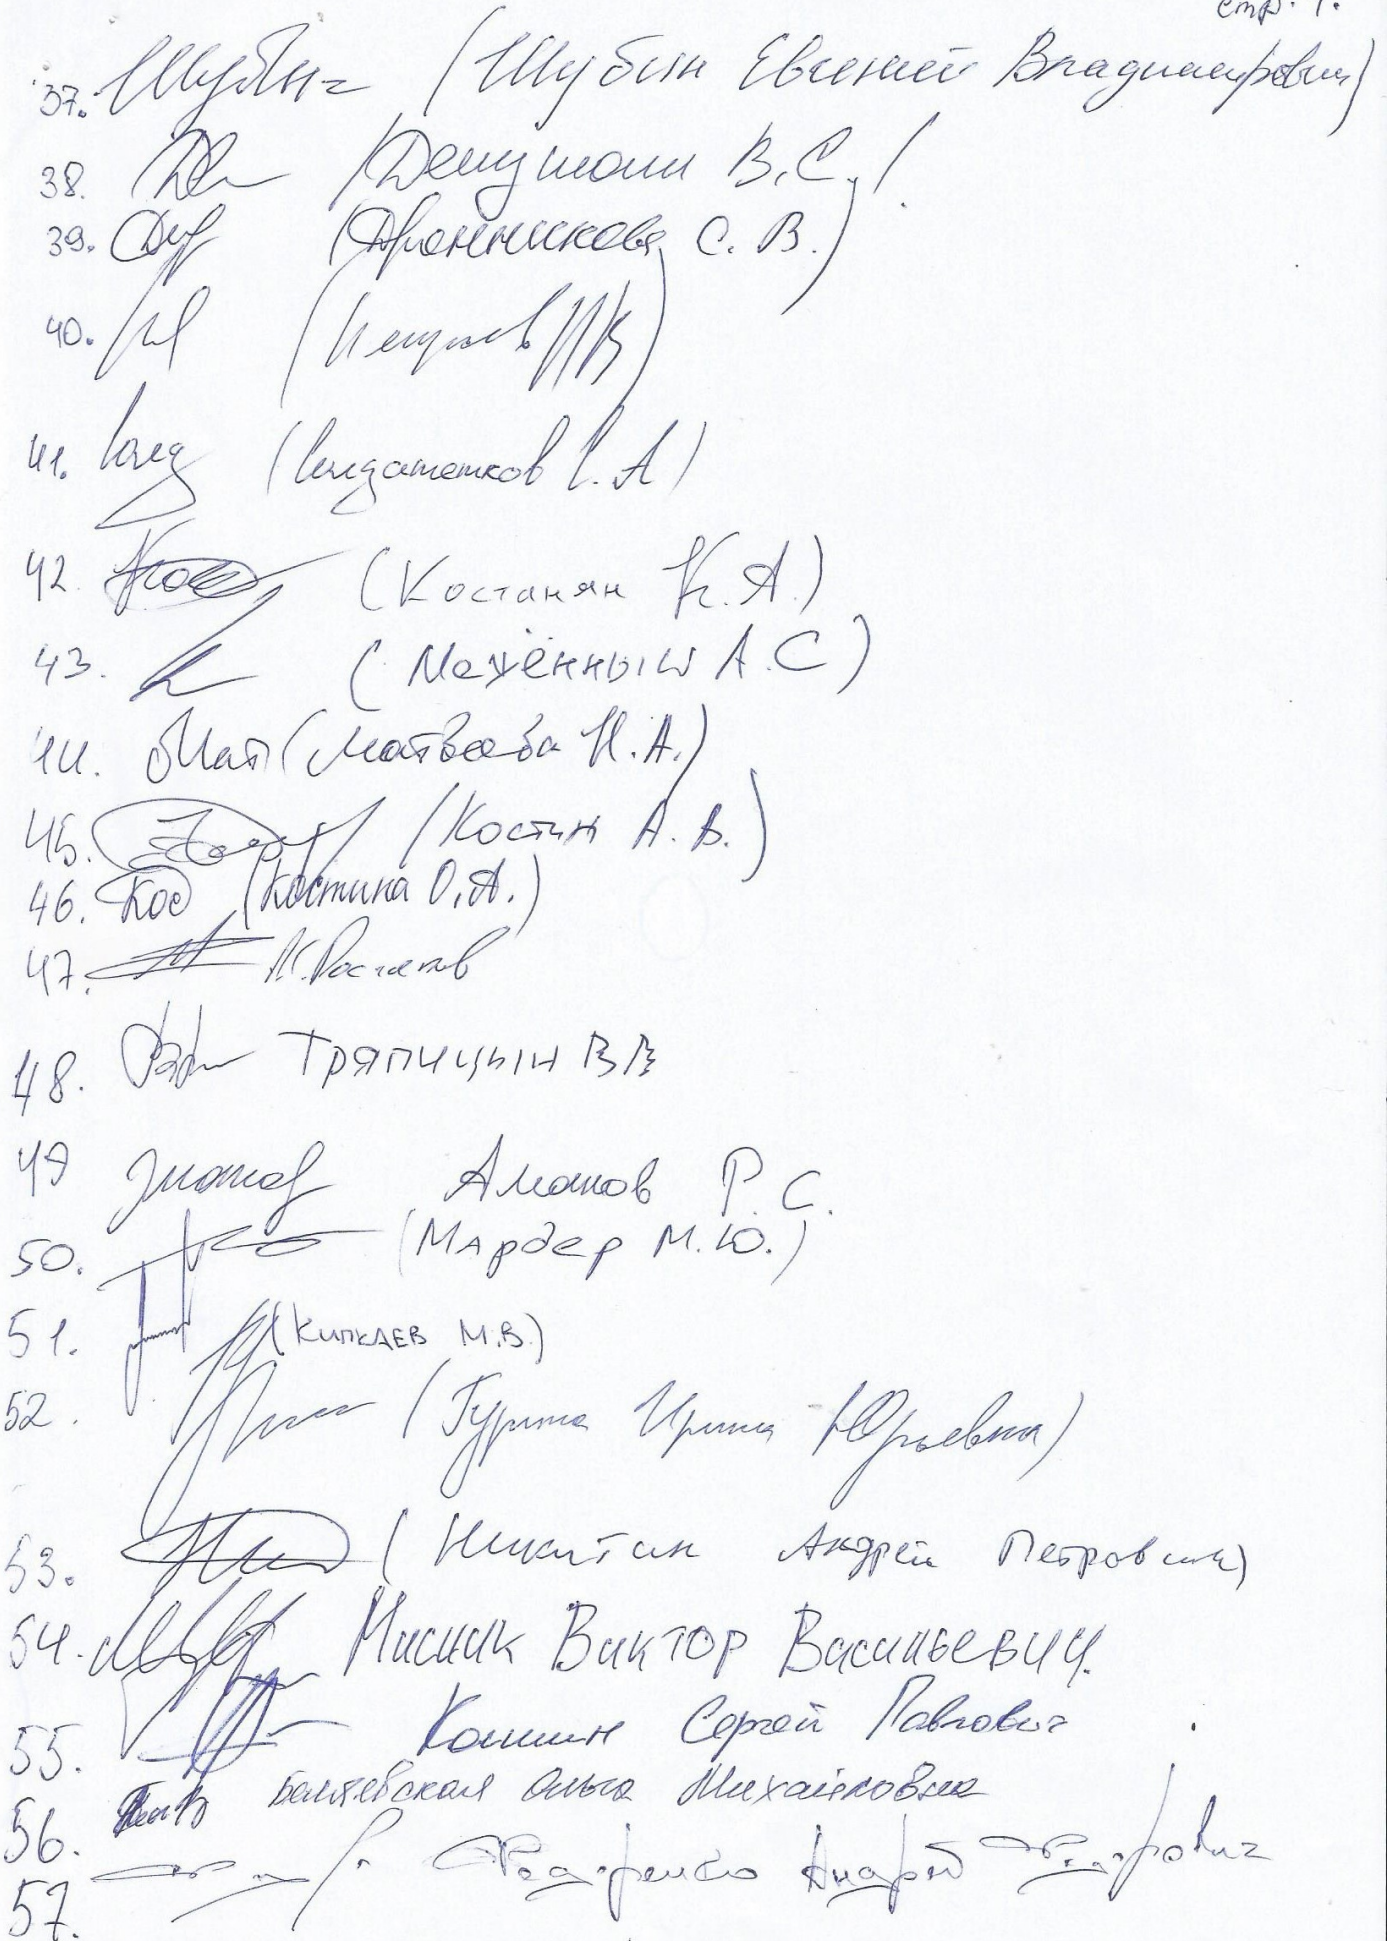 стр. 1.
37. Шубин (Шубин Евгений Владимирович)
38. (Демушкин В.С.)
39. (Дронникова С. В.)
40.
41. Солд (Солдатенков С. А)
42. Кос (Костанян К. А.)
43. (Мажённый А. С)
44. Мат (Матвеева Н. А.)
45. (Костин А. В.)
46. Кос (Костина О. А.)
47.
48. Тряпицын В В
49 Аманов Р. С.
50. (Мардер М. Ю.)
51. (Кипкаев М. В.)
52. (Гурина Ирина Юрьевна)
53. (Никитин Андрей Петрович)
54. Мисник Виктор Васильевич.
55. Сергей Павлович
56. Ольга Михайловна
57. Федоренко Андрей Федорович